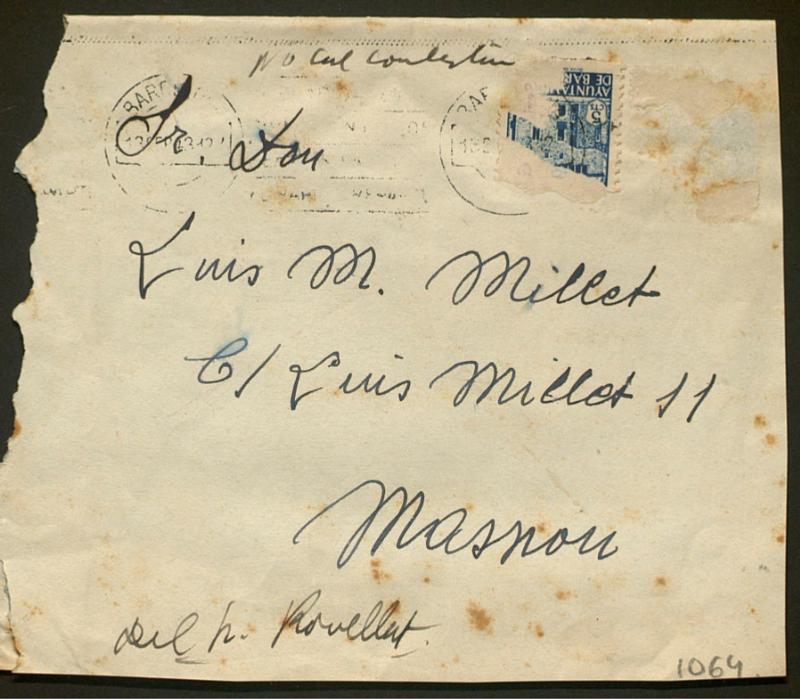 No cal contestar
BAR
Sr. Don
AYUNTA
DE BAR
5
CTS
Luis M. Millet
C/ Luis Millet 11
Masnou
del Sr. Rovellat.
1064